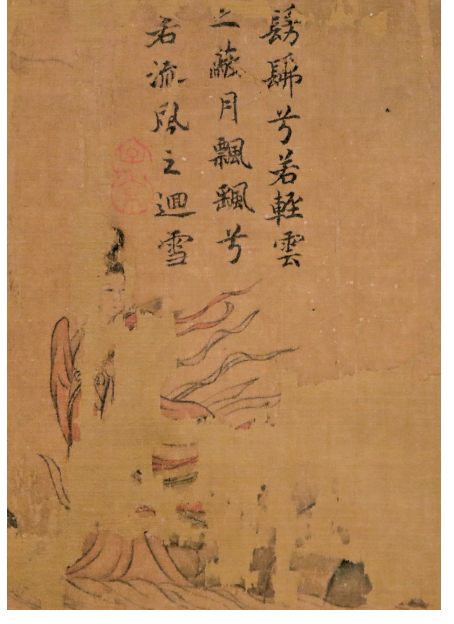 髣髴兮若輕雲
之蔽月飄颻兮
若流風之迴雪